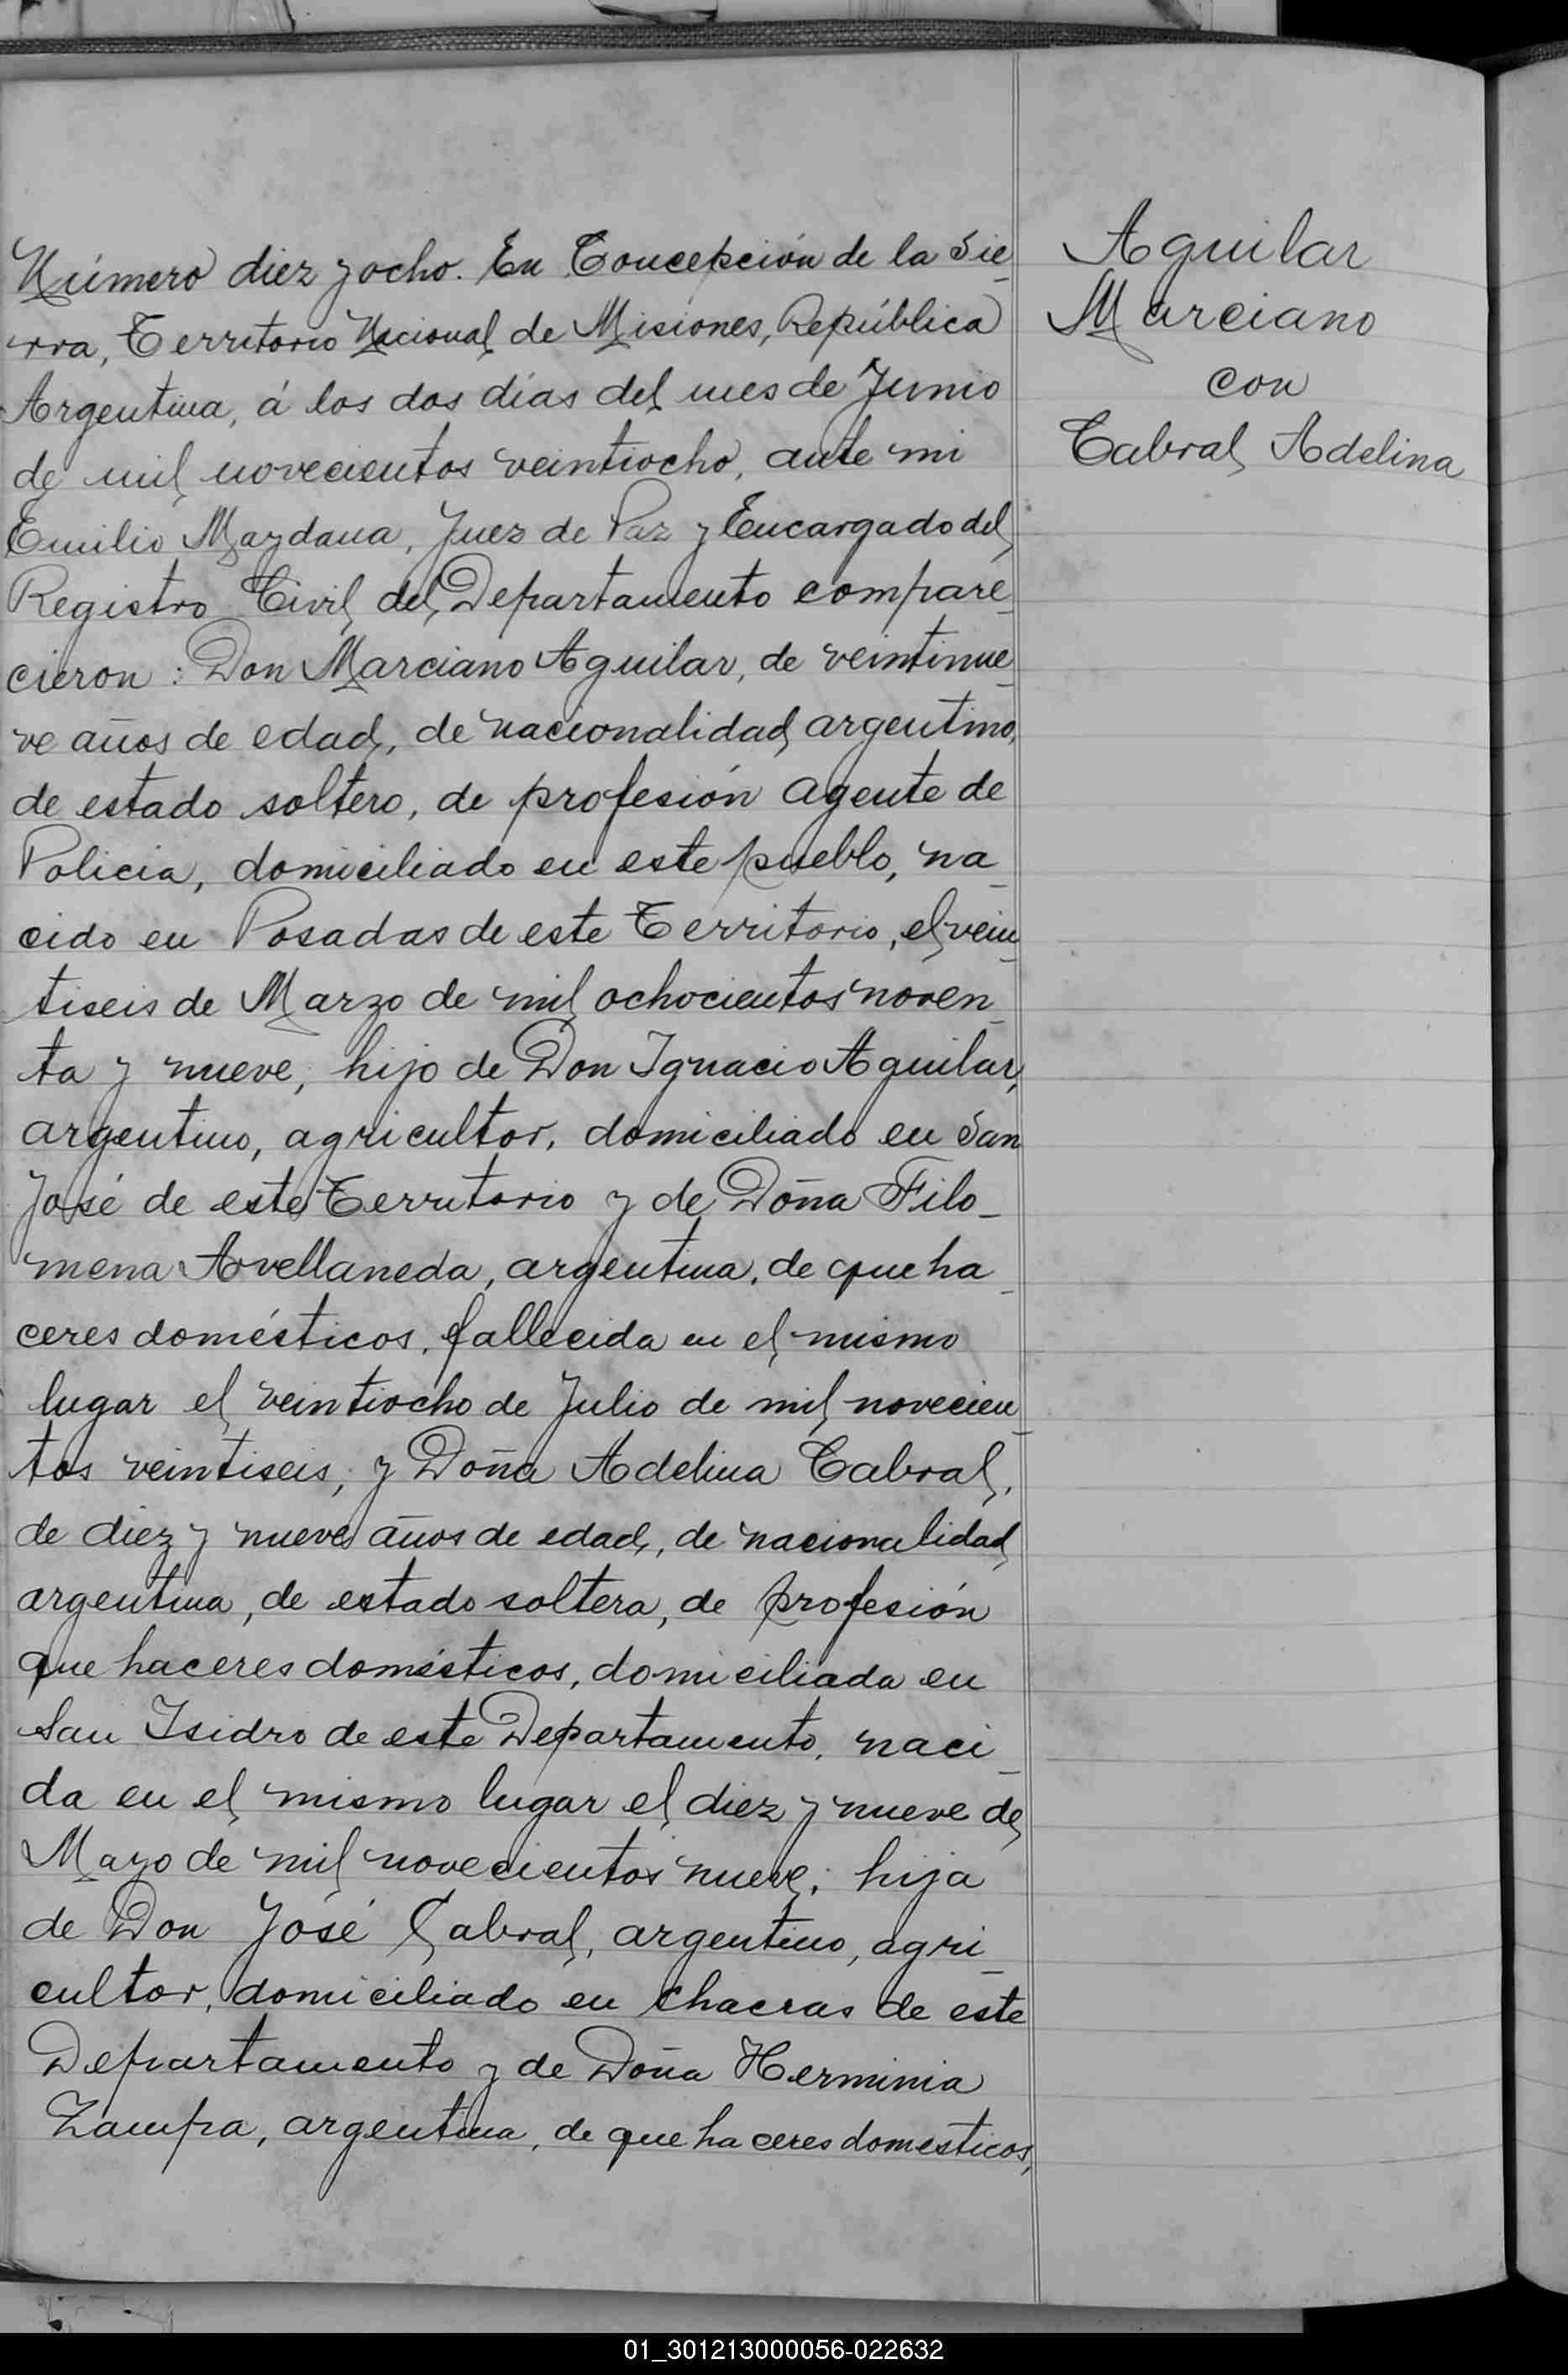 Número diez y ocho. En Concepción de la Sie_
rra, Territorio Nacional de Misiones, República
Argentina, á los dos días del mes de Junio
de mil novecientos veintiocho, ante mi
Emilio Maydana, Juez de Paz y Encargado del
Registro Civil del Departamento compare_
cieron: Don Marciano Aguilar, de veintinue_
ve años de edad, de nacionalidad argentino,
de estado soltero, de profesión agente de
Policia, domiciliado en este pueblo, na_
cido en Posadas de este Territorio, el vein_
tiseis de Marzo de mil ochocientos noven_
ta y nueve, hijo de Don Ignacio Aguilar,
argentino, agricultor, domiciliado en San
José de este Territorio y de Doña Filo_
mena Avellaneda, argentina, de que ha_
ceres domésticos, fallecida en el mismo
lugar el veintiocho de Julio de mil novecien_
tos veintiseis; y Doña Adelina Cabral,
de diez y nueve años de edad, de nacionalidad
argentina, de estado soltera, de profesión
que haceres domésticos, domiciliada en
San Isidro de este Departamento, naci_
da en el mismo lugar el diez y nueve de
Mayo de mil novecientos nueve; hija
de Don José Cabral, argentino, agri_
cultor, domiciliado en chacras de este
Departamento y de Doña Herminia
Zampa, argentina, de que haceres domesticos,
Aguilar
Marciano
con
Cabral Adelina
01_301213000056-022632